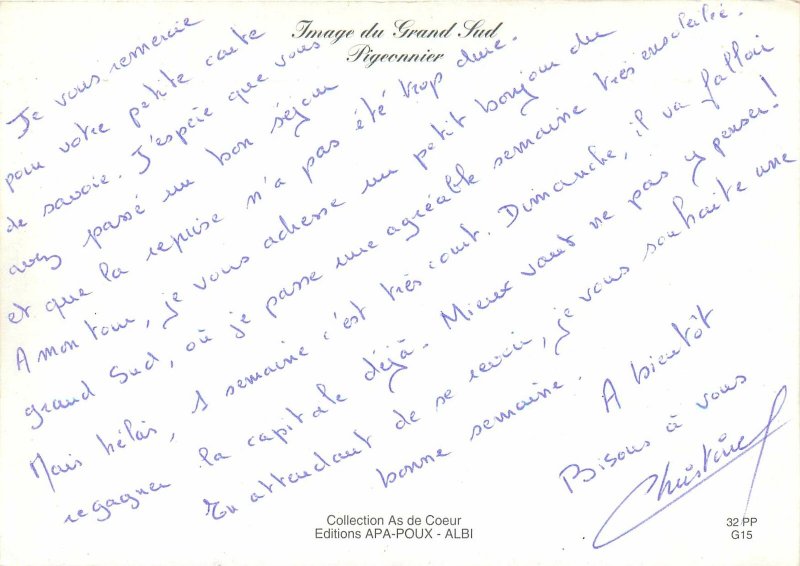 Image du Grand Sud
Pigeonnier
Je vous remercie
pour votre petite carte
de savoie. J'espère que vous
avez passé un bon séjour
et que la reprise n'a pas été trop dure.
A mon tour, je vous adresse un petit bonjour du
grand Sud, où je passe une agréable semaine très ensoleillée.
Mais hélas, 1 semaine c'est très court. Dimanche, il va falloir
regagner la capitale déjà. Mieux vaut ne pas y penser!
En attendant de se revoir, je vous souhaite une
bonne semaine.
A bientôt
Bisous à vous
Christine
Collection As de Coeur
Editions APA-POUX - ALBI
32 PP
G15